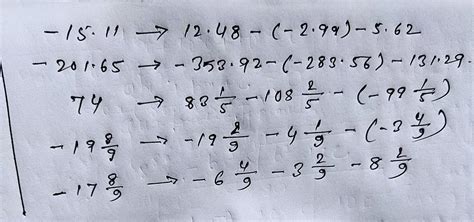 -15.11 → 12.48 - (-2.99) - 5.62
-201.65 → -353.92 - (-283.56) - 131.29.
74 → 83 1/5 - 108 2/5 - (-99 1/5)
-19 8/9 → -19 2/9 - 4 1/9 - (-3 4/9)
-17 8/9 → -6 4/9 - 3 2/9 - 8 2/9